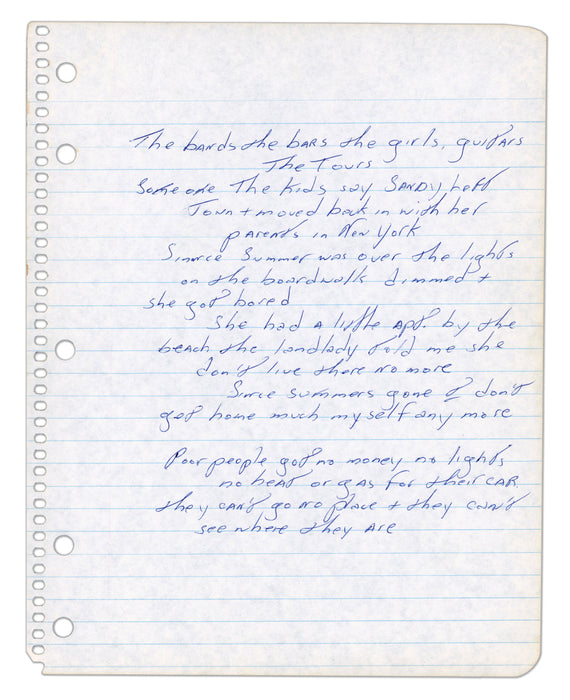 The bands the bars the girls, guitars
The Tours
Someone The kids say Sandy left
Town + moved back in with her
parents in New York
Sinnce Summer was over the lights
on the boardwalk dimmed +
she got bored
She had a little apt. by the
beach the landlady told me she
don't live there no more
Since summers gone I don't
get home much myself any more
Poor people got no money no lights
no heat or gas for their car
they can't go no place + they can't
see where they are